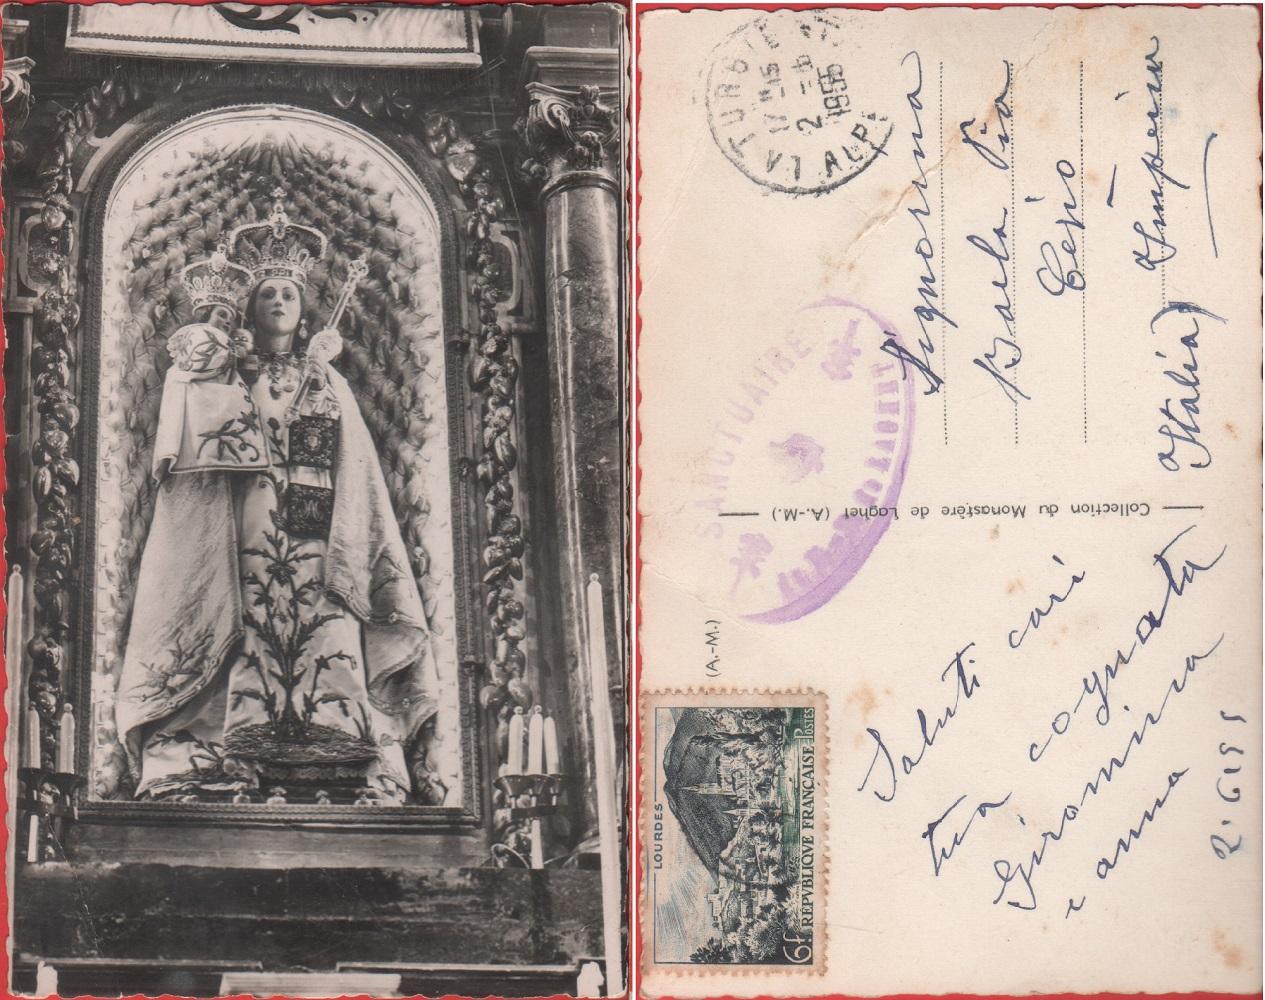 LA TURBIE
17H15
2 - 6
1956
ALP.
SANCTUAIRE
LAGHET
Signorina
Pia
Cepio
Imperia
(Italia)
Collection du Monastère de Laghet (A.-M.)
(A.-M.)
Saluti cari
tua cognata
Giromina
e anna
LOURDES
6f RÉPVBLIQVE FRANÇAISE POSTES